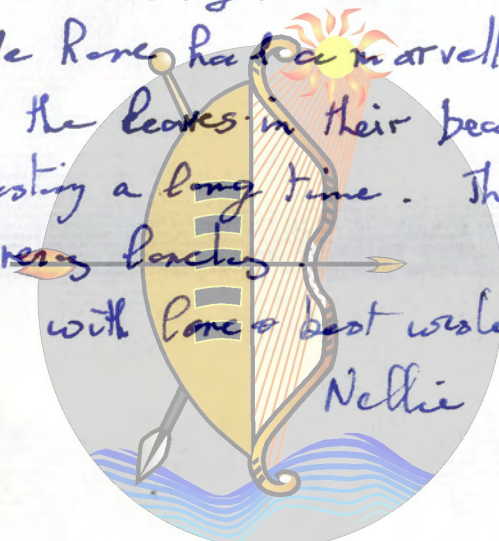 We have had a marvell
the leaves in their bea
a long time. Th
lovely.
with love & best wishe
Nellie